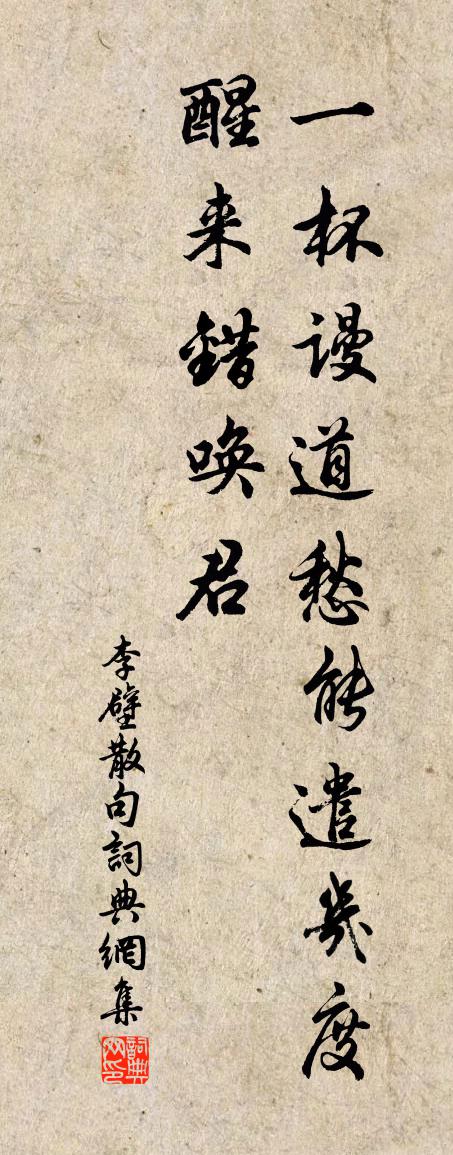 一杯谩道愁能遣幾度
醒来錯唤君
李壁散句詞典網集
詞典网印